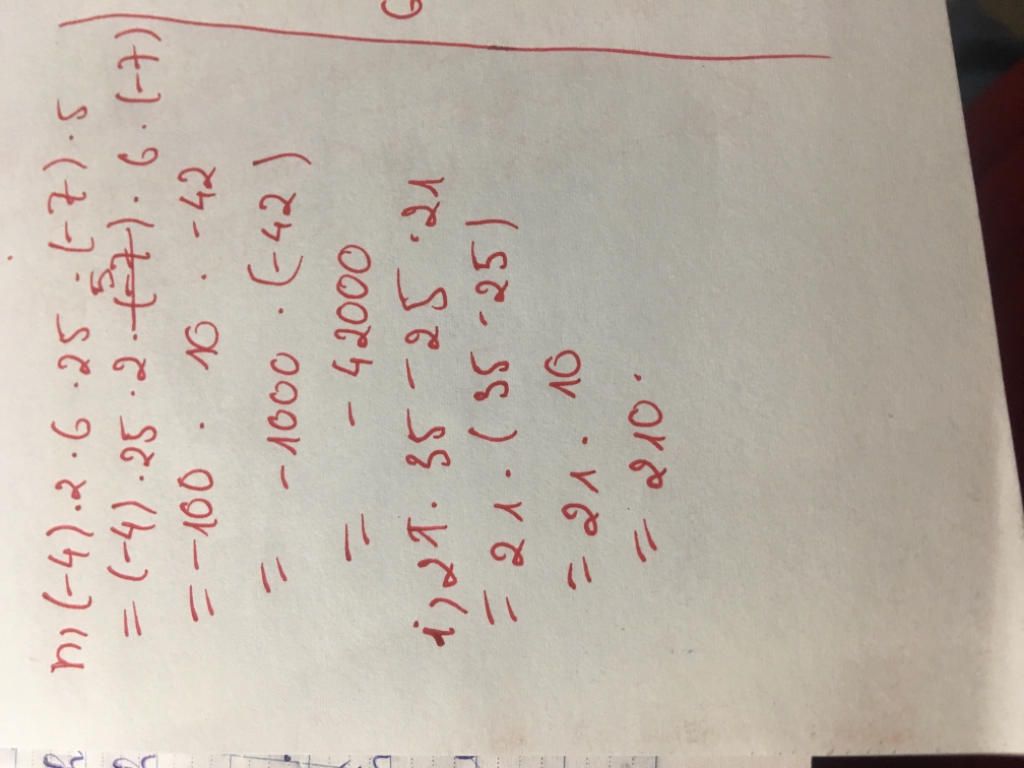 h) (-4).2.6.25.(-7).5
= (-4).25.2.5.6.(-7)
= -100.10.-42
= -1000.(-42)
= -42000
i) 21.35-25.21
= 21.(35-25)
= 21.10
= 210.